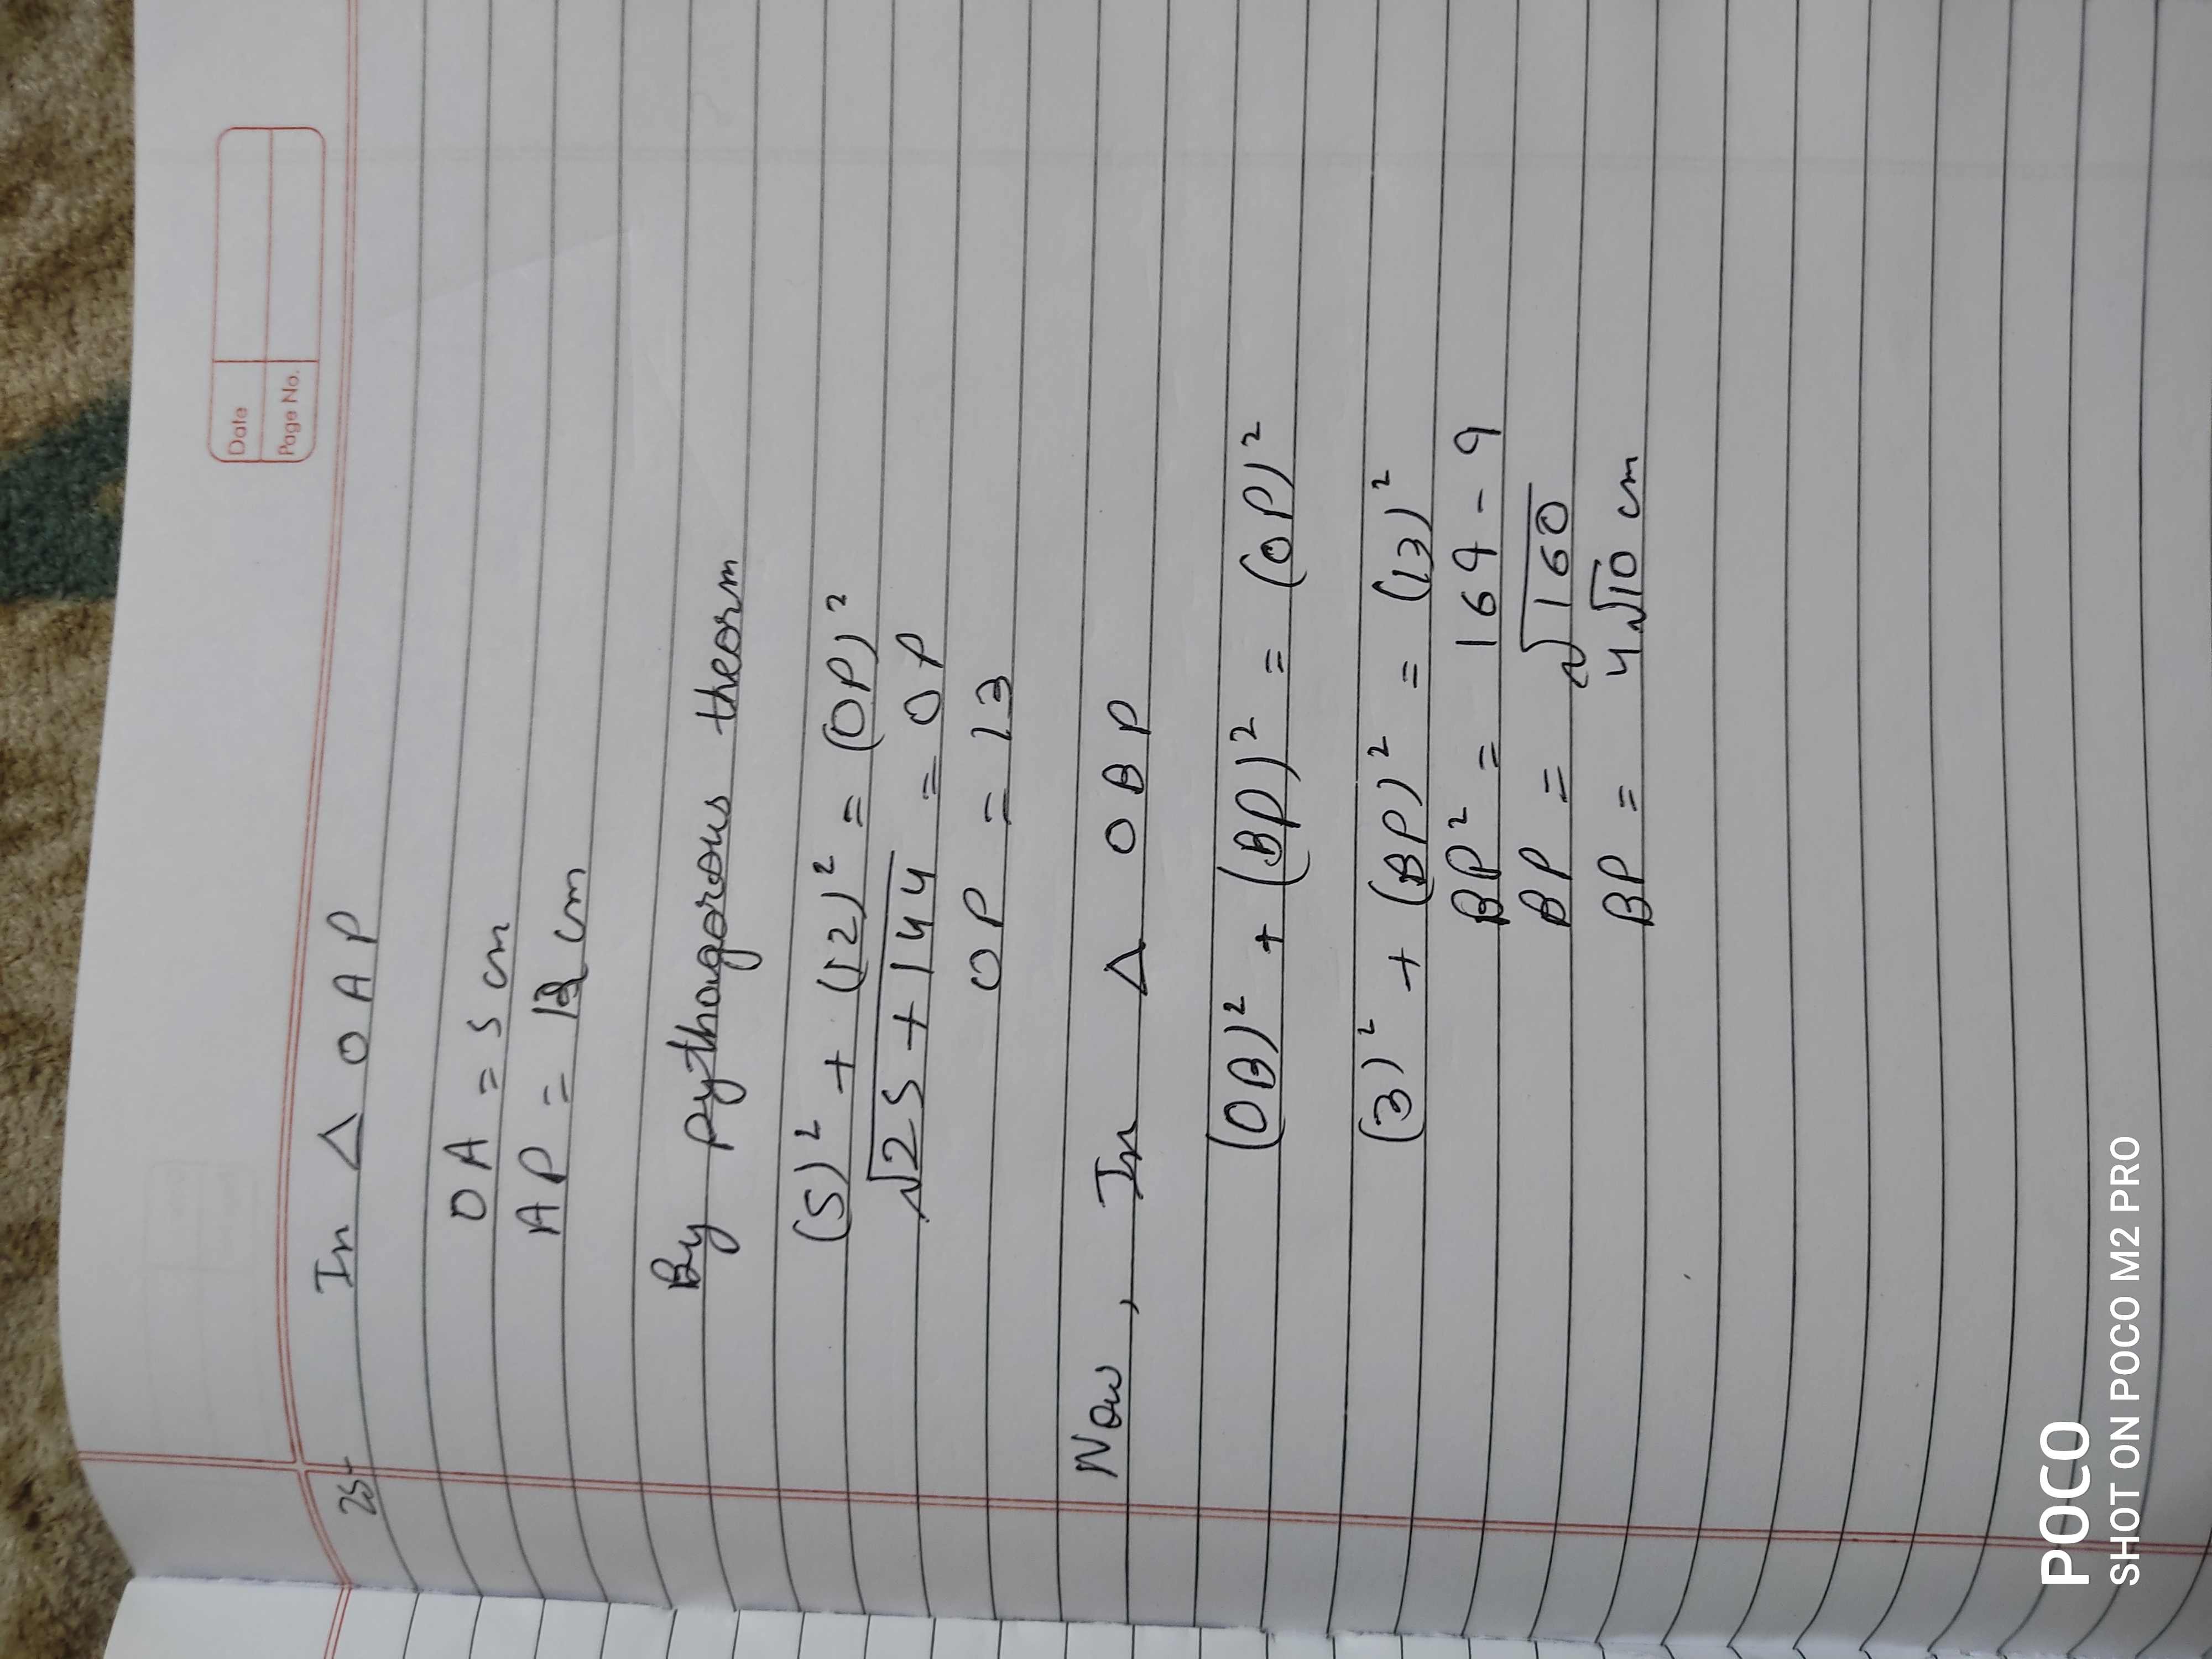 Date
Page No.
25
In △ OAP
OA = 5 cm
AP = 12 cm
By pythagorous theorm
(5)² + (12)² = (OP)²
√25 + 144 = OP
OP = 13
Now, In △ OBP
(OB)² + (BP)² = (OP)²
(3)² + (BP)² = (13)²
BP² = 169 - 9
BP = √160
BP = 4√10 cm
POCO
SHOT ON POCO M2 PRO